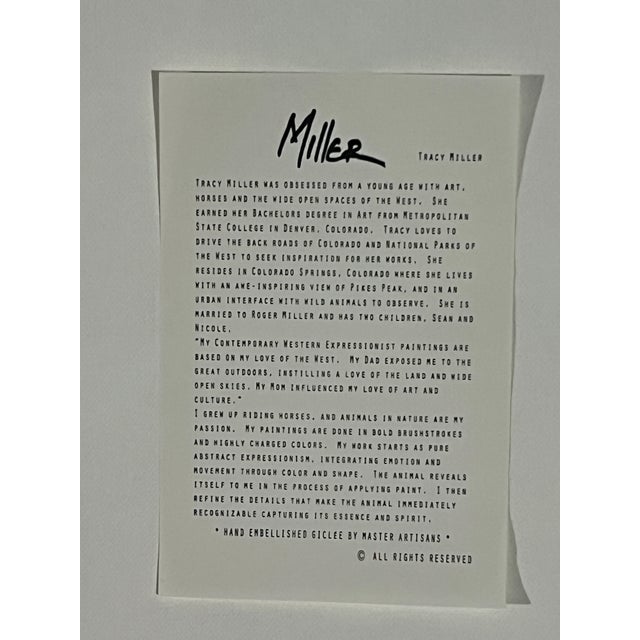 Miller
Tracy Miller
Tracy Miller was obsessed from a young age with art,
horses and the wide open spaces of the West. She
earned her Bachelors degree in Art from Metropolitan
State College in Denver, Colorado. Tracy loves to
drive the back roads of Colorado and National Parks of
the West to seek inspiration for her works. She
resides in Colorado Springs, Colorado where she lives
with an awe-inspiring view of Pikes Peak, and in an
urban interface with wild animals to observe. She is
married to Roger Miller and has two children, Sean and
Nicole.
"My Contemporary Western Expressionist paintings are
based on my love of the West. My Dad exposed me to the
great outdoors, instilling a love of the land and wide
open skies. My Mom influenced my love of art and
culture."
I grew up riding horses, and animals in nature are my
passion. My paintings are done in bold brushstrokes
and highly charged colors. My work starts as pure
abstract expressionism, integrating emotion and
movement through color and shape. The animal reveals
itself to me in the process of applying paint. I then
refine the details that make the animal immediately
recognizable capturing its essence and spirit.
* HAND EMBELLISHED GICLEE BY MASTER ARTISANS *
© ALL RIGHTS RESERVED